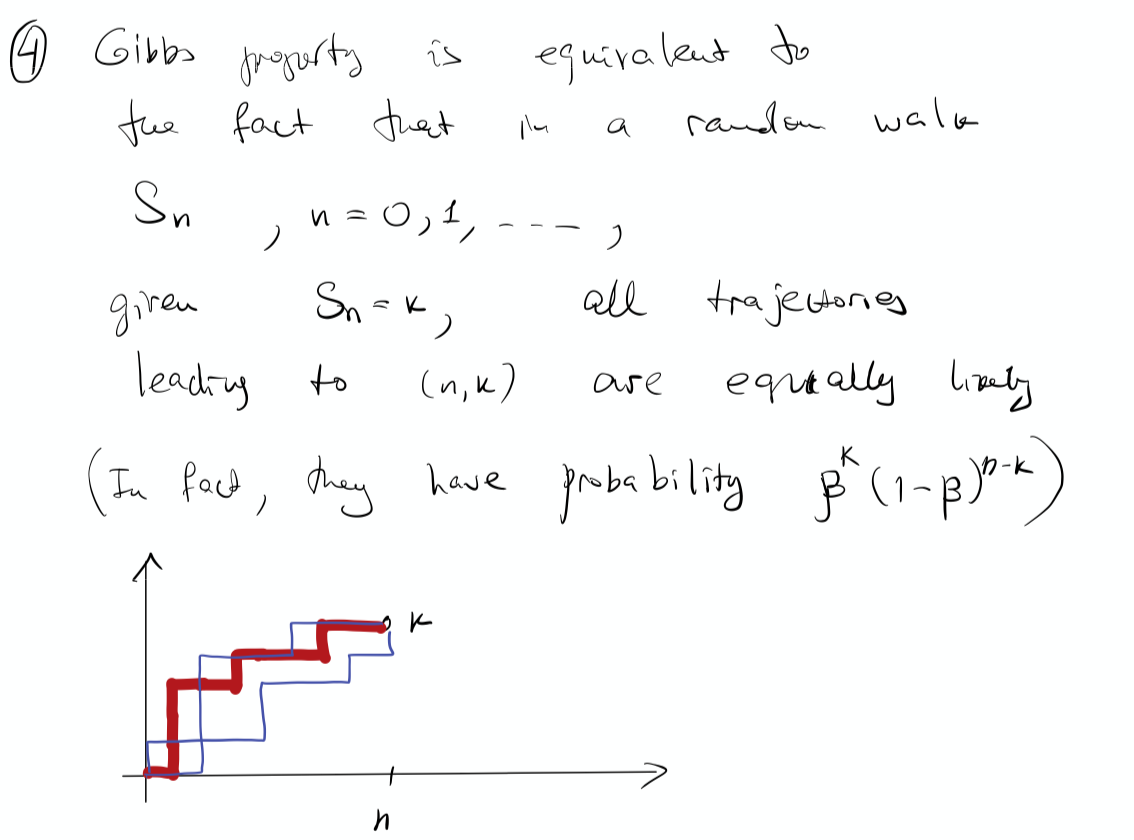 ④ Gibbs property is equivalent to
the fact that in a random walk
Sₙ , n = 0, 1, - - - ,
given Sₙ = k, all trajectories
leading to (n, k) are equally likely
(In fact, they have probability β^k (1-β)^{n-k})
k
n